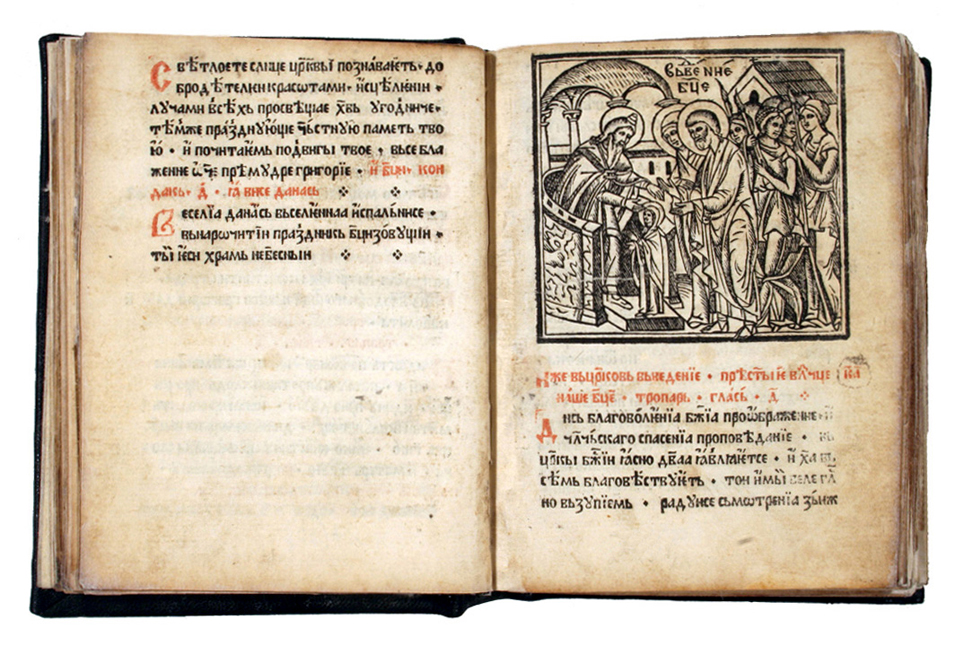 Свѣтлоѐте сл҃нце цр҃кв́ы познаваѥть· до
бродѣтелни красотами· ѝсцѣлюни·
лучами въсѣхь просвѣщае хв҃ь угодниче·
тѣмже празднующе чьстную паметь тво
ю · и почитаѥмь подвигы твоѥ , вьсебла
женне ѿч҃е прѣмудре григорїе · и бц҃ин· кон
дакь· д҃ · ꙗвисе данась
Веселїа данась вьселѥннаа ѝспальнисе ·
вьнарочитїи праздникь бц҃изовущїи ·
ты ѥси храмь нбⷭ҇есныи
вьвениѥ
бц҃е
иже вьцр҃ковь вьведениѥ · прѣст҃ыѥ вл҃чце
наше бц҃е · тропарь · глась · д҃
Днсь благоволѥнїа бж҃їа проѡбражениѥ
чл҃чьскаго спасенїа проповѣданїе ·
цр҃кы бж҃їи ꙗсно дв҃аа ꙗвлꙗѥтсе · и х҃а вь
сѣмь благовѣствуѥть · тои имы велегл҃
но вьзупїемь · радуисе сьмотренїа зыж